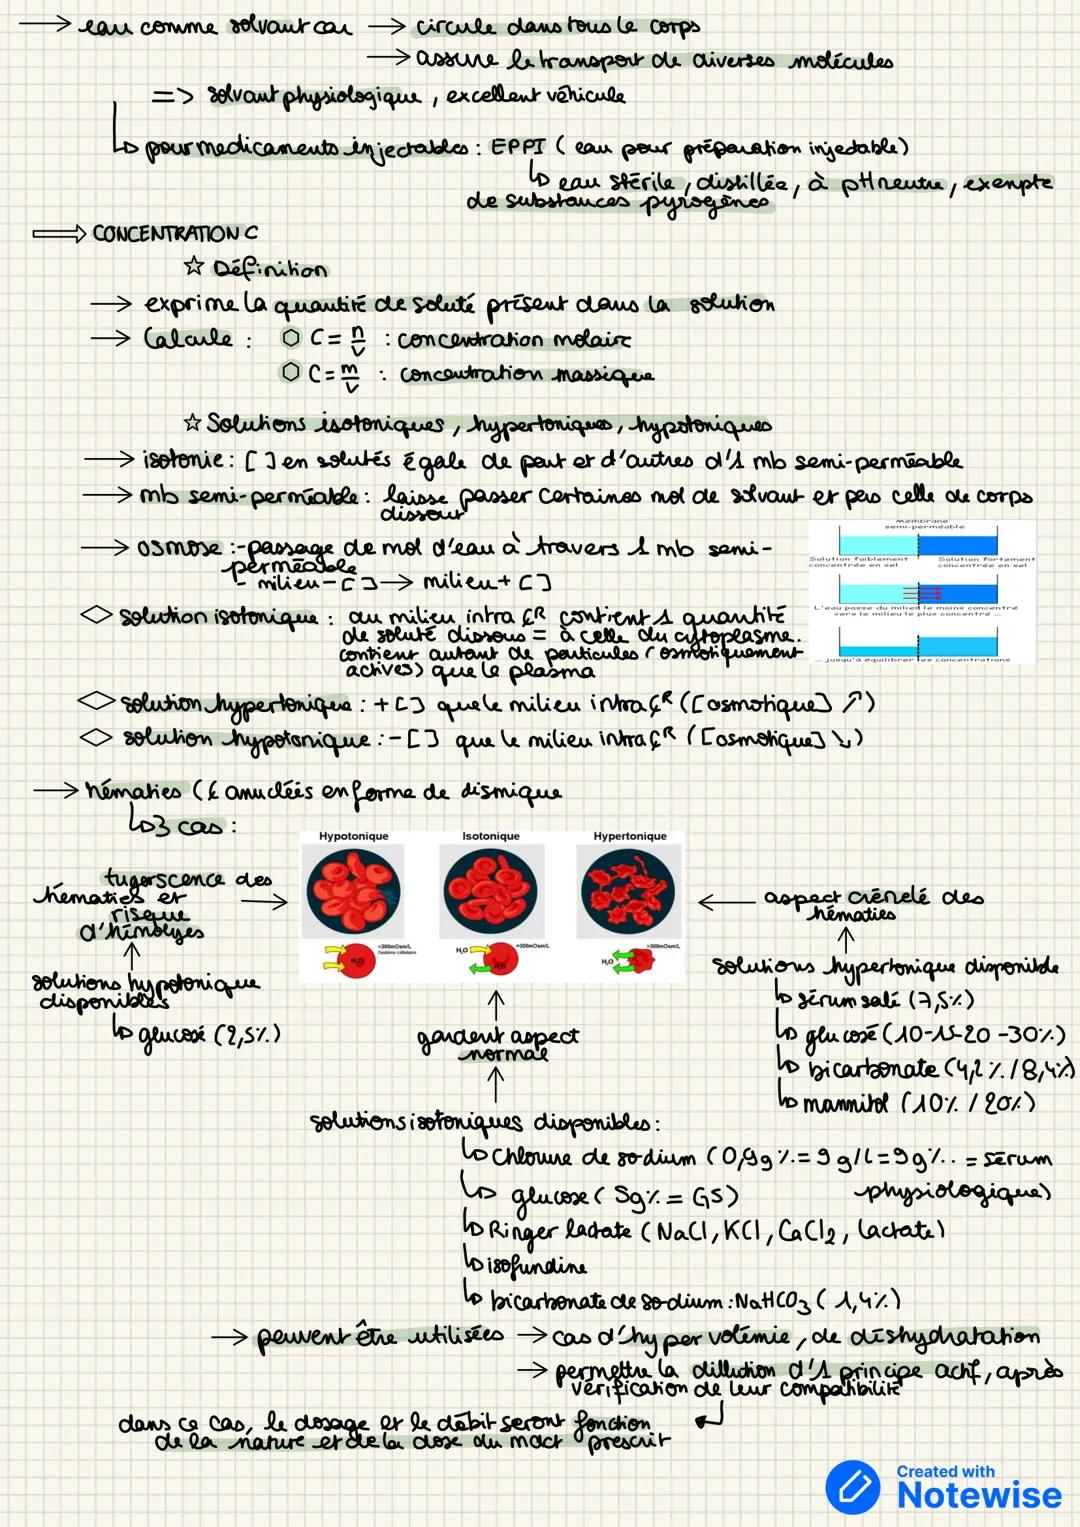 → eau comme solvant car → circule dans tous le corps
→ assure le transport de diverses molécules
=> solvant physiologique, excellent véhicule
↳ pour medicaments injectables : EPPI ( eau pour préparation injectable)
↳ eau stérile, distillée, à pH neutre, exempte
de substances pyrogènes
⇒ CONCENTRATION C
☆ Définition
→ exprime la quantité de soluté présent dans la solution
→ Calcule : ⬡ C = n/V : concentration molaire
⬡ C = m/V : concentration massique
☆ Solutions isotoniques, hypertoniques, hypotoniques
→ isotonie : [ ] en solutés égale de part et d'autres d'1 mb semi-perméable
→ mb semi-perméable : laisse passer certaines mol de solvant et pas celle de corps
dissout
→ osmose : - passage de mol d'eau à travers 1 mb semi-
perméable
- milieu - [ ] → milieu + [ ]
Membrane
semi-perméable
Solution faiblement
concentrée en sel
Solution fortement
concentrée en sel
L'eau passe du milieu le moins concentré
vers le milieu le plus concentré ...
... jusqu'à équilibrer les concentrations
◇ solution isotonique : au milieu intra çR contient 1 quantité
de soluté dissous = à celle du cytoplasme.
contient autant de particules (osmotiquement
actives) que le plasma
◇ solution hypertonique : + [ ] que le milieu intra çR ([osmotique] ↗)
◇ solution hypotonique : - [ ] que le milieu intra çR ([osmotique] ↘)
→ hématies ( anuclées en forme de dismique
↳ 3 cas :
Hypotonique
Isotonique
Hypertonique
tugerscence des
hématies et
risque
d'hémolyes
→
<300mOsm/L
Oedème cellulaire
H₂O
H₂O
=300mOsm/L
H₂O
>300mOsm/L
H₂O
← aspect crénelé des
hématies
↑
solutions hypotonique
disponibles
↳ glucosé (2,5%)
↑
gardent aspect
normal
↑
↑
solutions hypertonique disponible
↳ sérum salé (7,5%)
↳ glucosé (10-15-20-30%)
↳ bicarbonate (4,2% / 8,4%)
↳ mannitol (10% / 20%)
solutions isotoniques disponibles :
↳ Chlorure de sodium (0,9g % = 9 g/l = 9g %. . = sérum
physiologique)
↳ glucose ( 5g% = G5)
↳ Ringer lactate (NaCl, KCl, CaCl₂, lactate)
↳ isofundine
↳ bicarbonate de sodium : NaHCO₃ ( 1,4%)
→ peuvent être utilisées → cas d'hypervolémie, de déshydratation
→ permettre la dillution d'1 principe actif, après
vérification de leur compatibilité
dans ce cas, le dosage et le débit seront fonction
de la nature et de la dose du mdct prescrit
Created with
Notewise